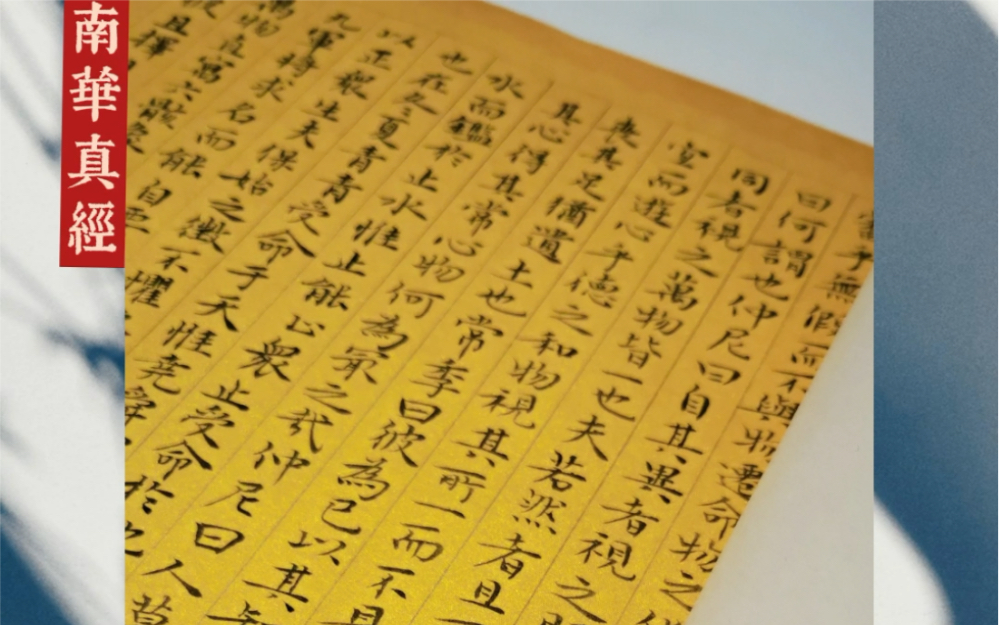 南華真經
審乎無假而不與物遷命物之
曰何謂也仲尼曰自其異者視之
同者視之萬物皆一也夫若然者且
宜而遊心乎德之和物視其所一而不見
喪其足猶遺土也常季曰彼為己以其知
其心得其常心物何為最之哉仲尼曰人莫
水而鑑於止水惟止能止眾止受命於地
也在冬夏青青受命于天惟堯舜
以正眾生夫保始之徵不懼
九軍將求名而能自要
萬物直寓六骸象
且擇